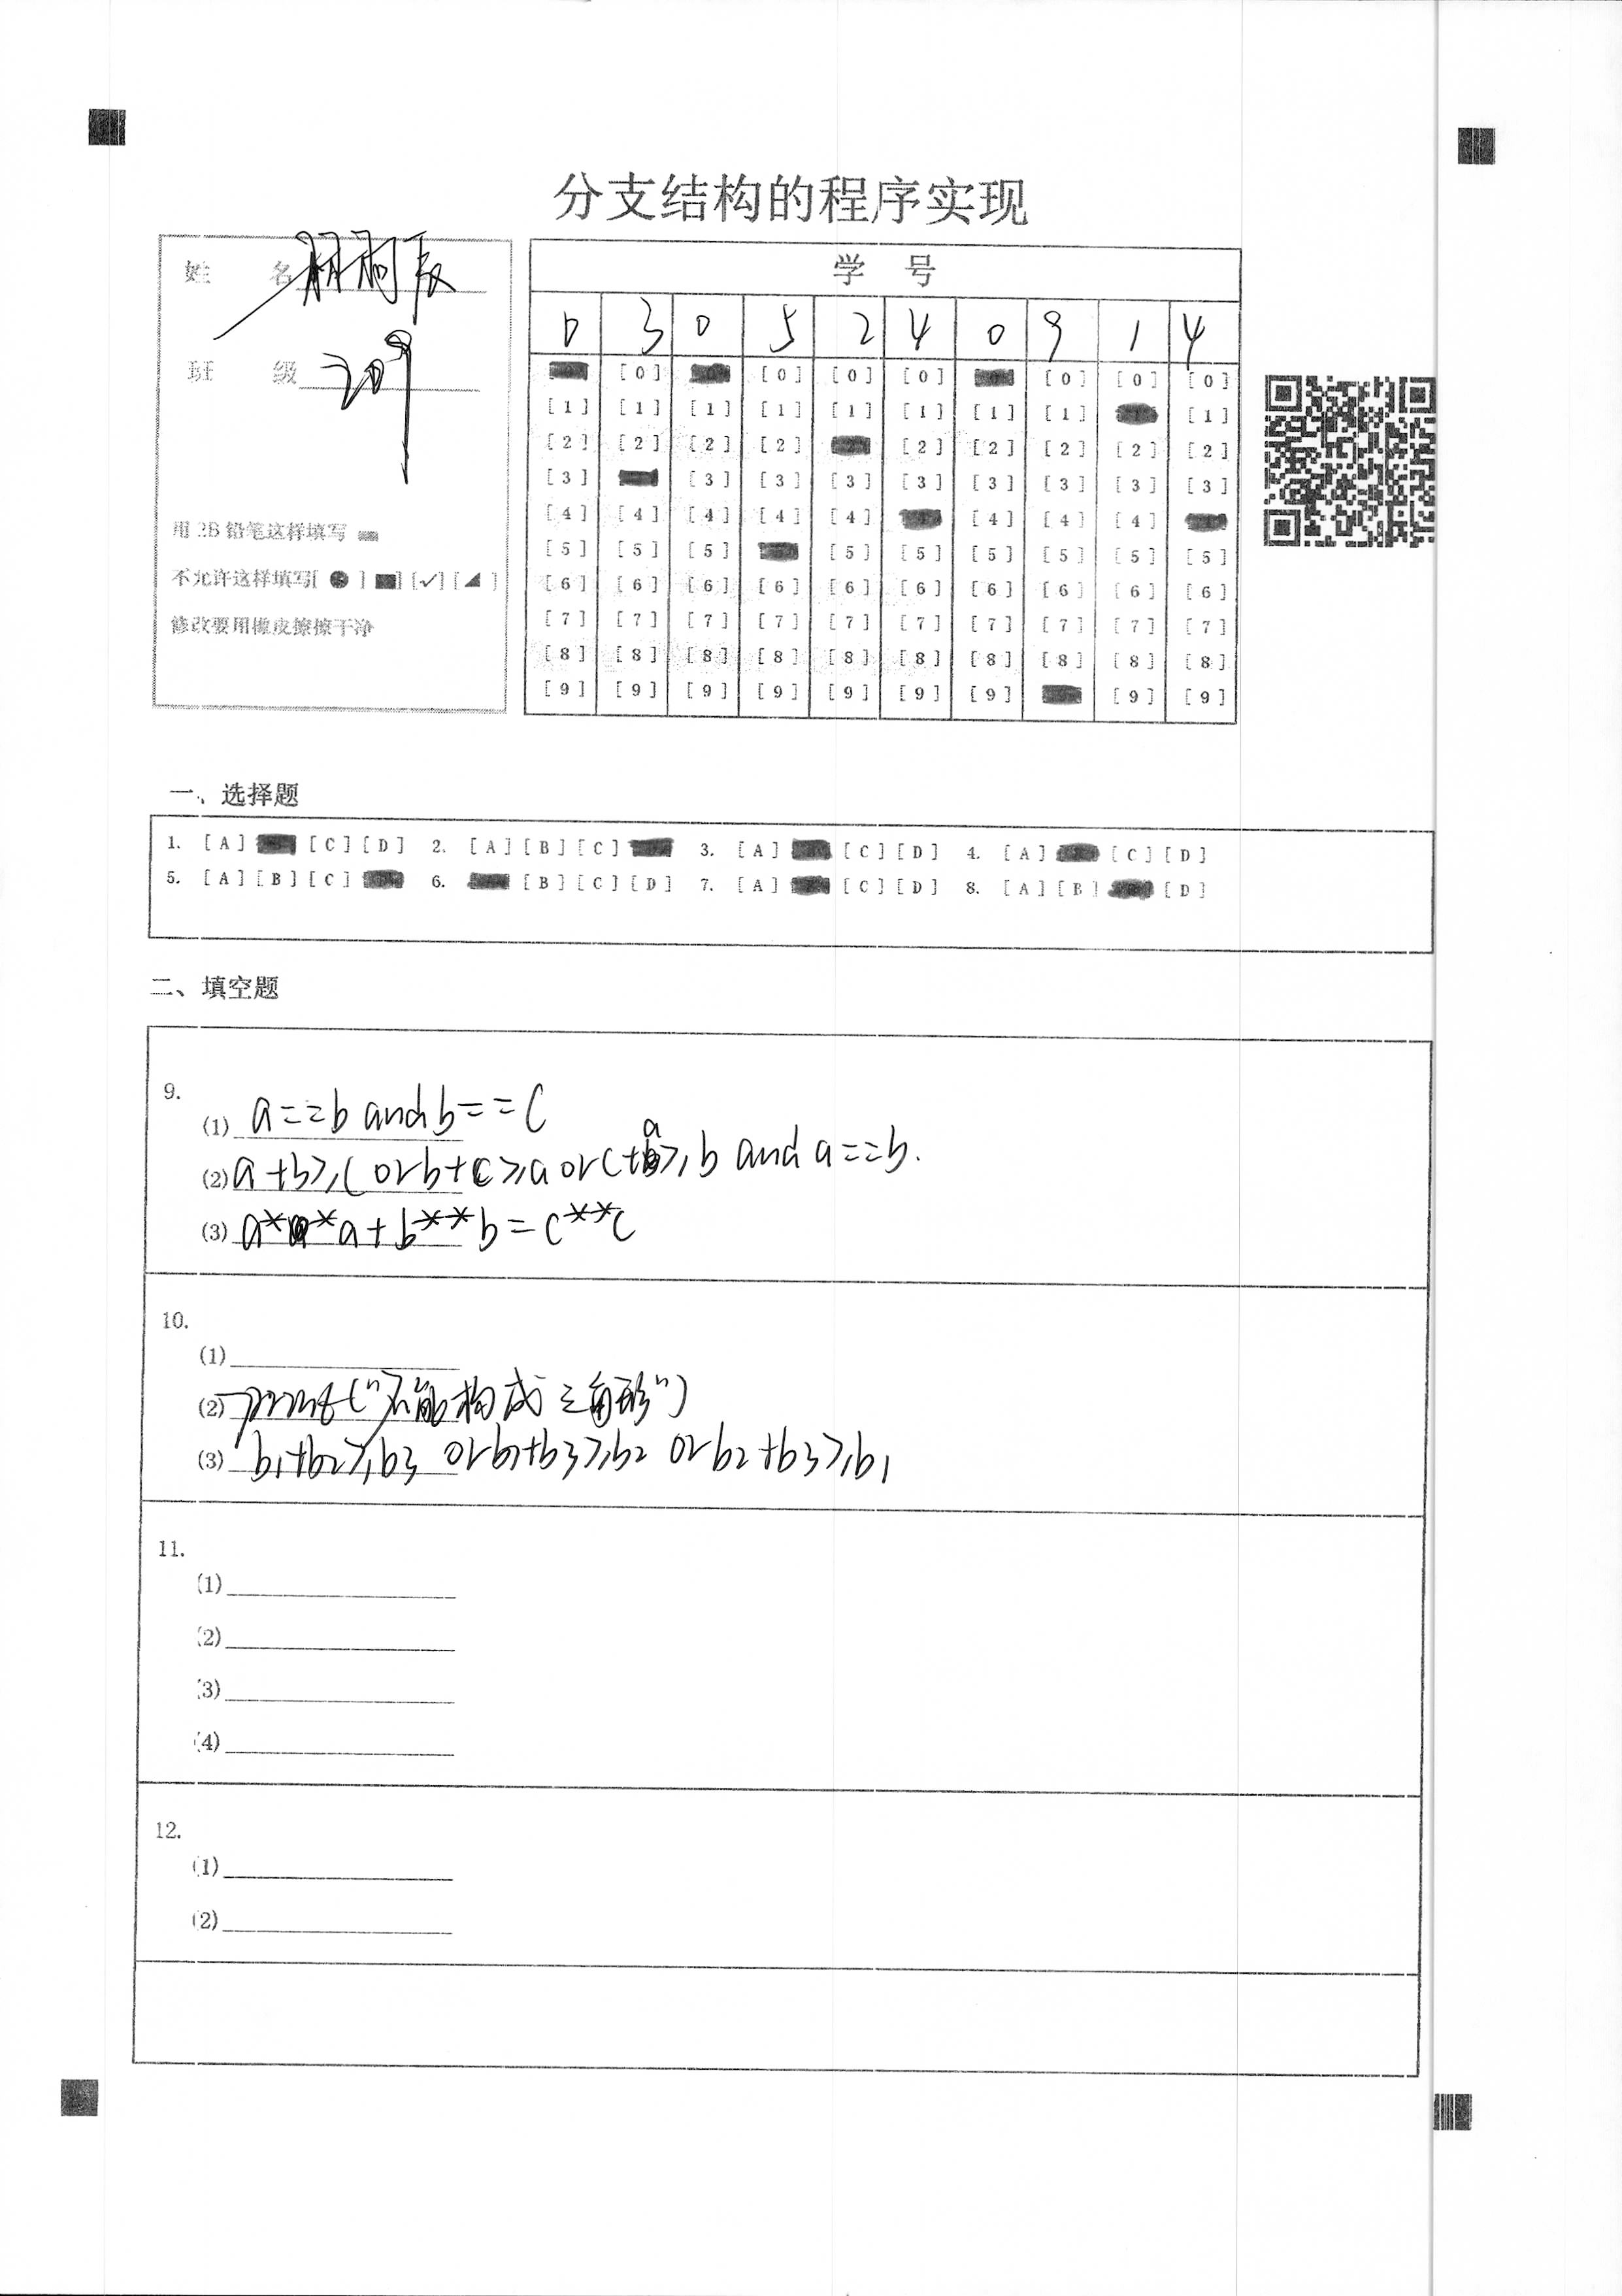 分支结构的程序实现
姓 名
班 级 209
用 2B 铅笔这样填写
不允许这样填写[ ● ] [■] [✓] [◢ ]
修改要用橡皮擦擦干净
学 号
0 3 0 5 2 4 0 9 1 4
[0] [0] [0] [0] [0] [0] [0]
[1] [1] [1] [1] [1] [1] [1] [1] [1]
[2] [2] [2] [2] [2] [2] [2] [2] [2]
[3] [3] [3] [3] [3] [3] [3] [3] [3]
[4] [4] [4] [4] [4] [4] [4] [4]
[5] [5] [5] [5] [5] [5] [5] [5] [5]
[6] [6] [6] [6] [6] [6] [6] [6] [6] [6]
[7] [7] [7] [7] [7] [7] [7] [7] [7] [7]
[8] [8] [8] [8] [8] [8] [8] [8] [8] [8]
[9] [9] [9] [9] [9] [9] [9] [9] [9]
一、选择题
1. [A] [C] [D] 2. [A] [B] [C] 3. [A] [C] [D] 4. [A] [C] [D]
5. [A] [B] [C] 6. [B] [C] [D] 7. [A] [C] [D] 8. [A] [B] [D]
二、填空题
9.
(1) a==b and b==c
(2) a+b≥c or b+c≥a or c+a≥b and a==b.
(3) a**a+b**b=c**c
10.
(1)
(2) print("不能构成三角形")
(3) b1+b2≥b3 or b1+b3≥b2 or b2+b3≥b1
11.
(1)
(2)
(3)
(4)
12.
(1)
(2)